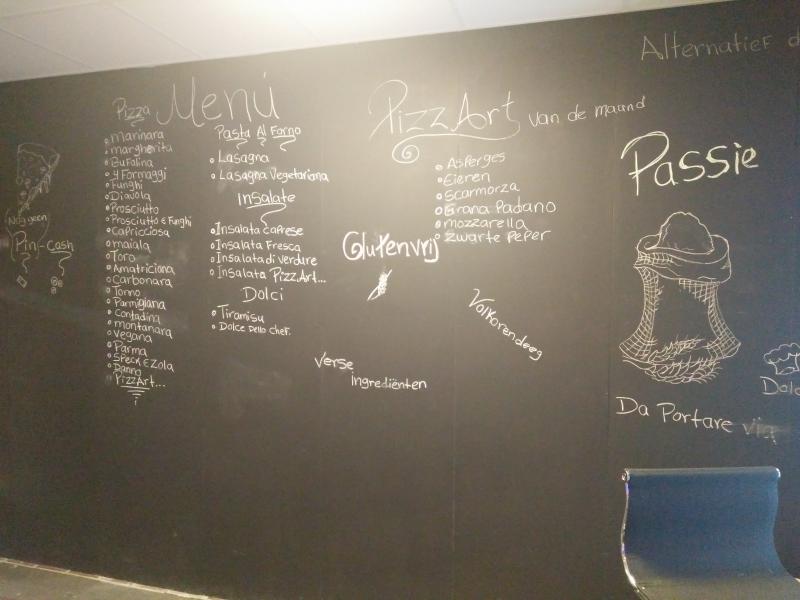 Alternatief d
Menú
Pizza
Marinara
margherita
Bufalina
4 Formaggi
Funghi
Diavola
Prosciutto
Prosciutto e Funghi
Capricciosa
maiala
Toro
Amatriciana
Carbonara
Tonno
Parmigiana
Contadina
montanara
vegana
Parma
Speck E Zola
Danna
PizzArt...
Pasta Al Forno
Lasagna
Lasagna Vegetariana
Insalate
Insalata Caprese
Insalata Fresca
Insalata di Verdure
Insalata PizzArt...
Dolci
Tiramisu
Dolce Dello Chef.
PizzArt van de maand
Asperges
Eieren
Scarmorza
Grana Padano
mozzarella
Zwarte Peper
Glutenvrij
Volkorendeeg
Verse
Ingrediënten
Passie
Da Portare via
Dolc
Nog geen
Pin-Cash